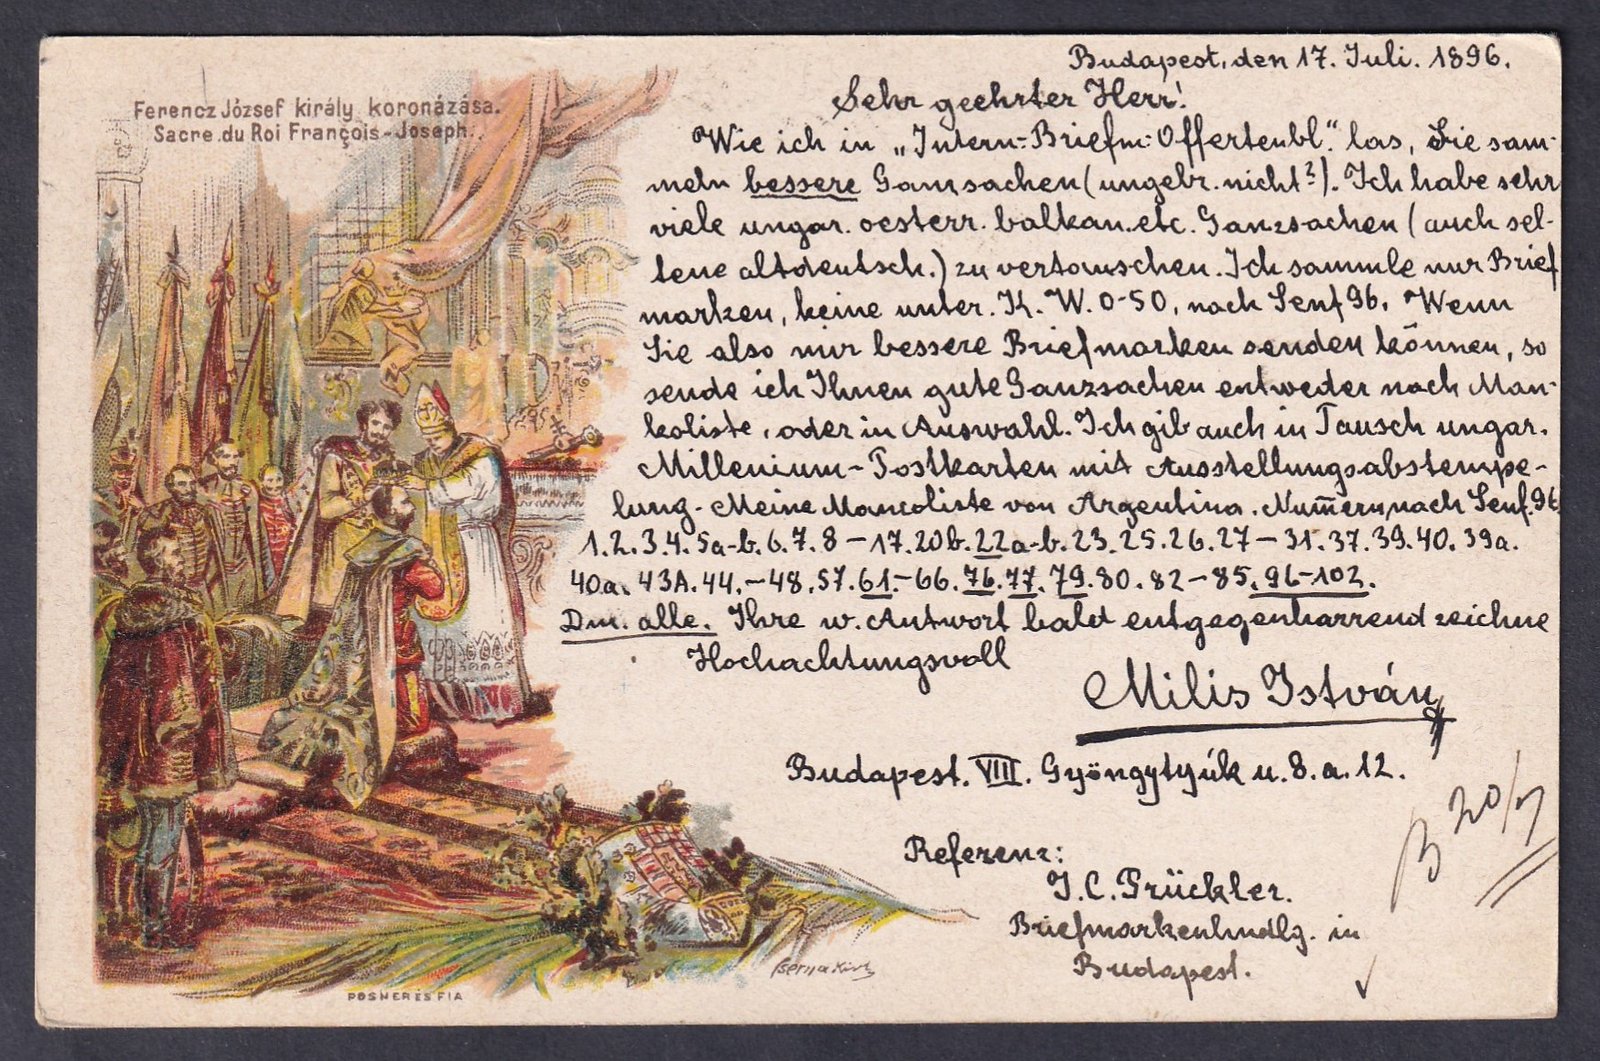 Ferencz József király koronázása.
Sacre du Roi François-Joseph.
Budapest, den 17. Juli. 1896.
Sehr geehrter Herr!
Wie ich in „Intern.-Briefm.-Offertenbl." las, Sie sam-
meln bessere Ganzsachen (ungebr. nicht?). Ich habe sehr
viele ungar. oesterr. balkan. etc. Ganzsachen (auch sel-
tene altdeutsch.) zu vertauschen. Ich sammle nur Brief
marken, keine unter. K. W. 0-50, nach Senf 96. Wenn
Sie also mir bessere Briefmarken senden können, so
sende ich Ihnen gute Ganzsachen entweder nach Man-
koliste, oder in Auswahl. Ich gib auch in Tausch ungar.
Millenium-Postkarten mit Ausstellungsabstempe-
lung. Meine Mancoliste von Argentina. Num̄ern nach Senf. 96
1. 2. 3. 4. 5a-b. 6. 7. 8 – 17. 20b. 22a-b. 23. 25. 26. 27 – 31. 37. 39. 40. 39a.
40a. 43A. 44. – 48. 57. 61. – 66. 76. 77. 79. 80. 82 – 85. 96-102.
alle. Ihre w. Antwort bald entgegenharrend zeichne
Hochachtungsvoll
Milis István
Budapest. VIII. Gyöngytyúk u. 8. a. 12.
B 20/7
Referenz:
J. C. Prückler.
Briefmarkenhndlg. in
Budapest.
POSNER ÉS FIA